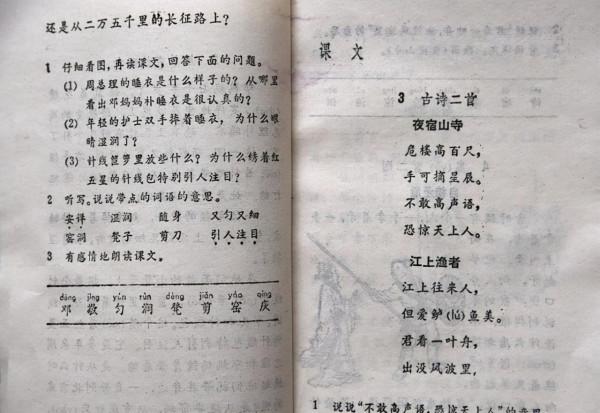 还是从二万五千里的长征路上？
1 仔细看图，再读课文，回答下面的问题。
(1) 周总理的睡衣是什么样子的？从哪里
看出邓妈妈补睡衣是很认真的？
(2) 年轻的护士双手捧着睡衣，为什么眼
睛湿润了？
(3) 针线笸箩里放些什么？为什么绣着红
五星的针线包特别引人注目？
2 听写。说说带点的词语的意思。
安详 湿润 随身 又匀又细
窑洞 凳子 剪刀 引人注目
3 有感情地朗读课文。
dèng jìng yún rùn dèng jiǎn yáo qìng
邓 敬 匀 润 凳 剪 窑 庆
课 文
3 古诗二首
夜宿山寺
危楼高百尺，
手可摘星辰。
不敢高声语，
恐惊天上人。
江上渔者
江上往来人，
但爱鲈(lú)鱼美。
君看一叶舟，
出没风波里。
1 说说“不敢高声语，恐惊天上人”的意思